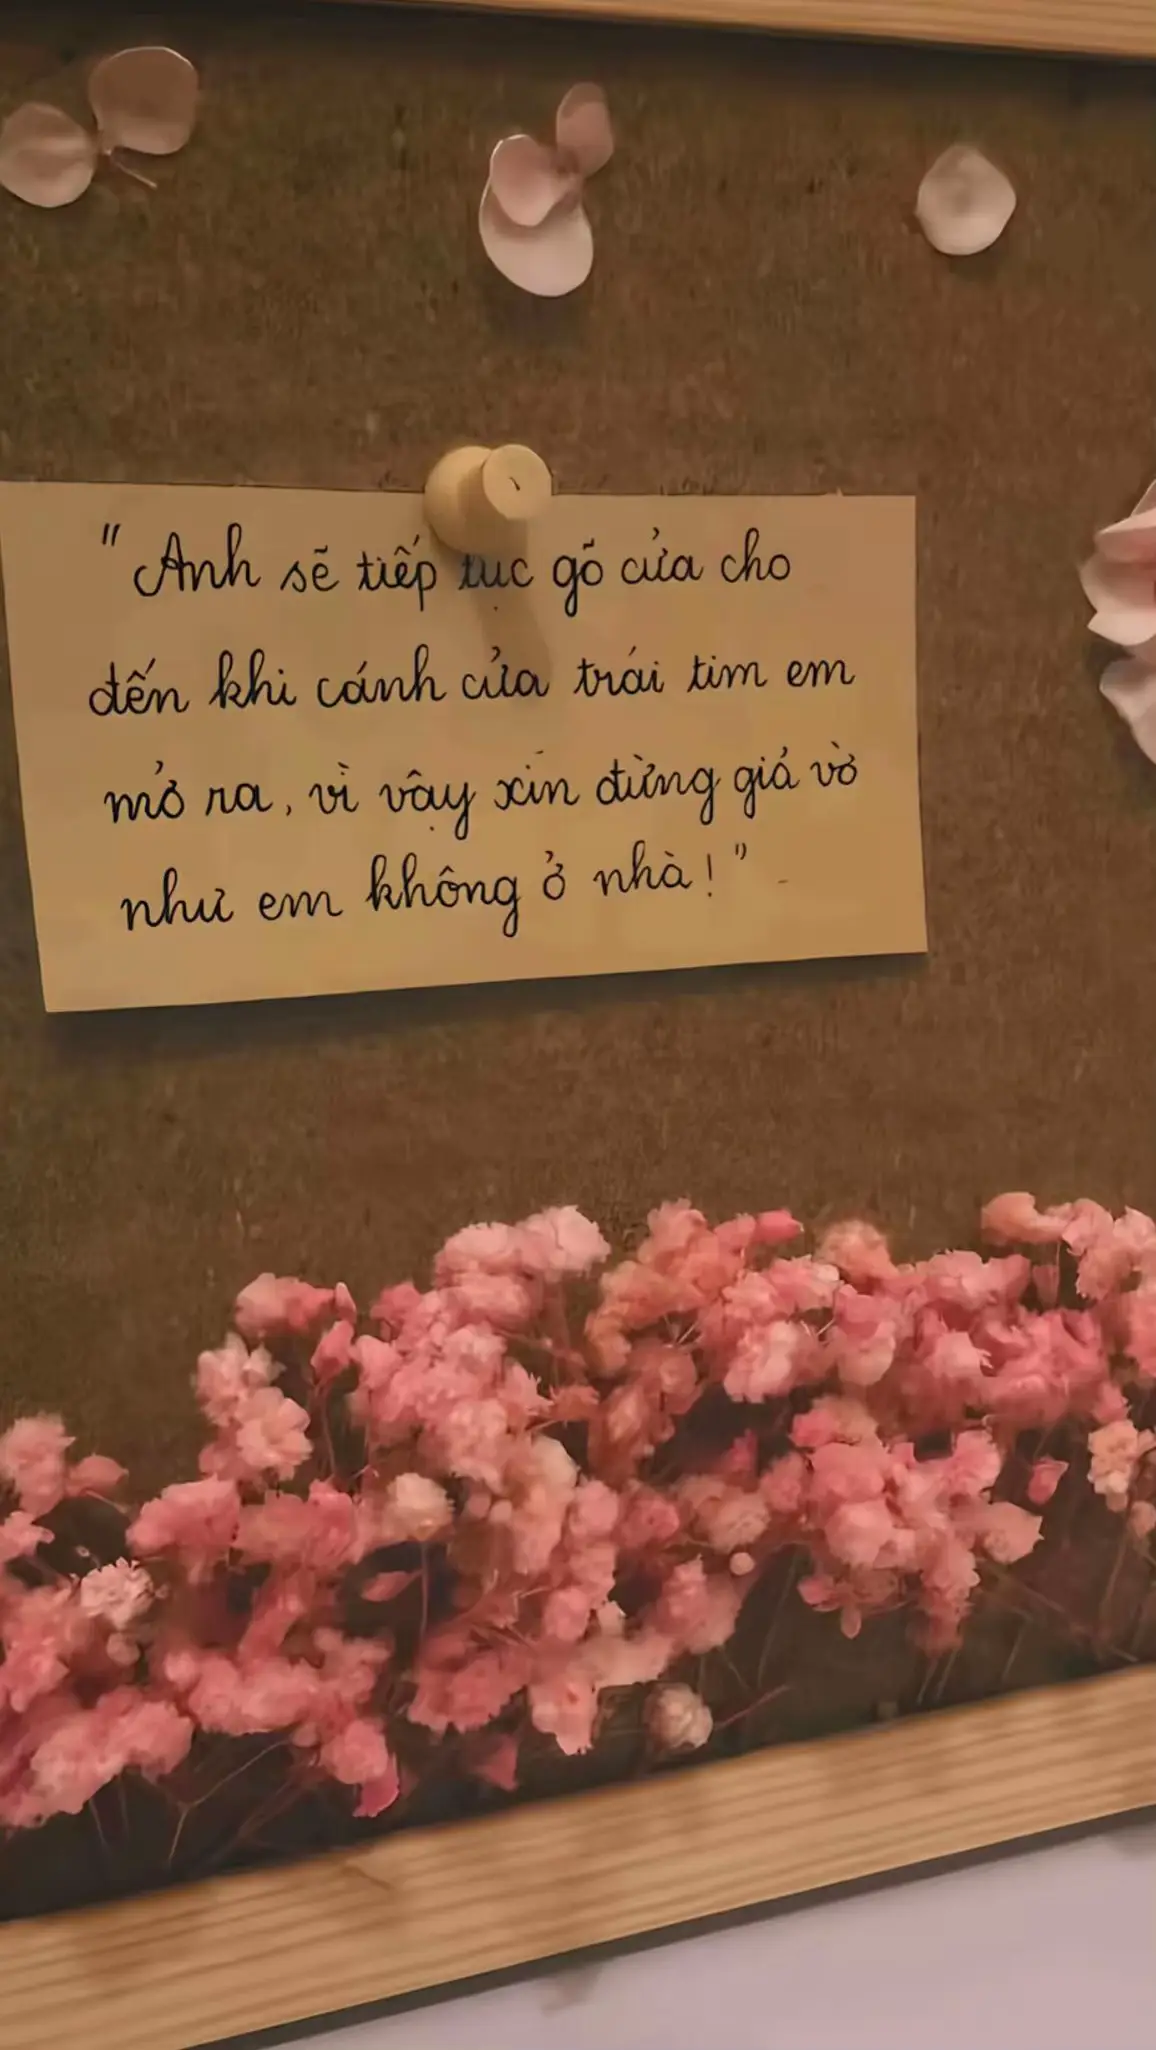 "Anh sẽ tiếp tục gõ cửa cho
đến khi cánh cửa trái tim em
mở ra, vì vậy xin đừng giả vờ
như em không ở nhà!"